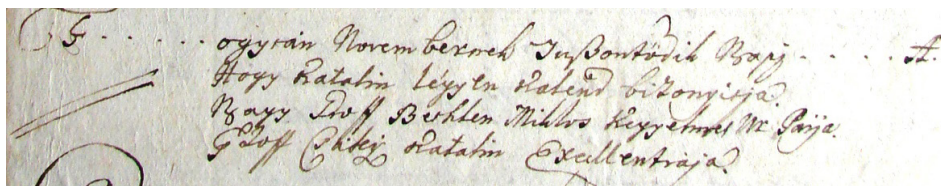 § . . . . . ogyván Novembernek Jußontödik Napj . . . . . A.
Hogy Katalin légyen Kalend bizonyisja.
Nagy Groff Bethlen Miklos Kegyelmes Ur Parja.
Groff Csáky Katalin Excellentiaja.